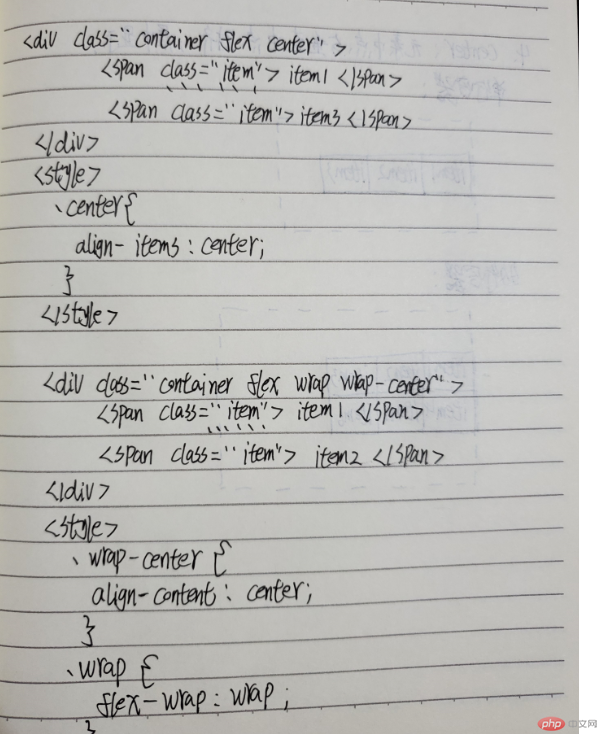 <div class="container flex center">
<span class="item"> item1 </span>
. . . . .
<span class="item"> item3 </span>
</div>
<style>
.center{
align-items : center;
}
</style>
<div class="container flex wrap wrap-center">
<span class="item"> item1 </span>
. . . . .
<span class="item"> item2 </span>
</div>
<style>
.wrap-center {
align-content : center;
}
.wrap {
flex-wrap : wrap ;
}
php 中文网